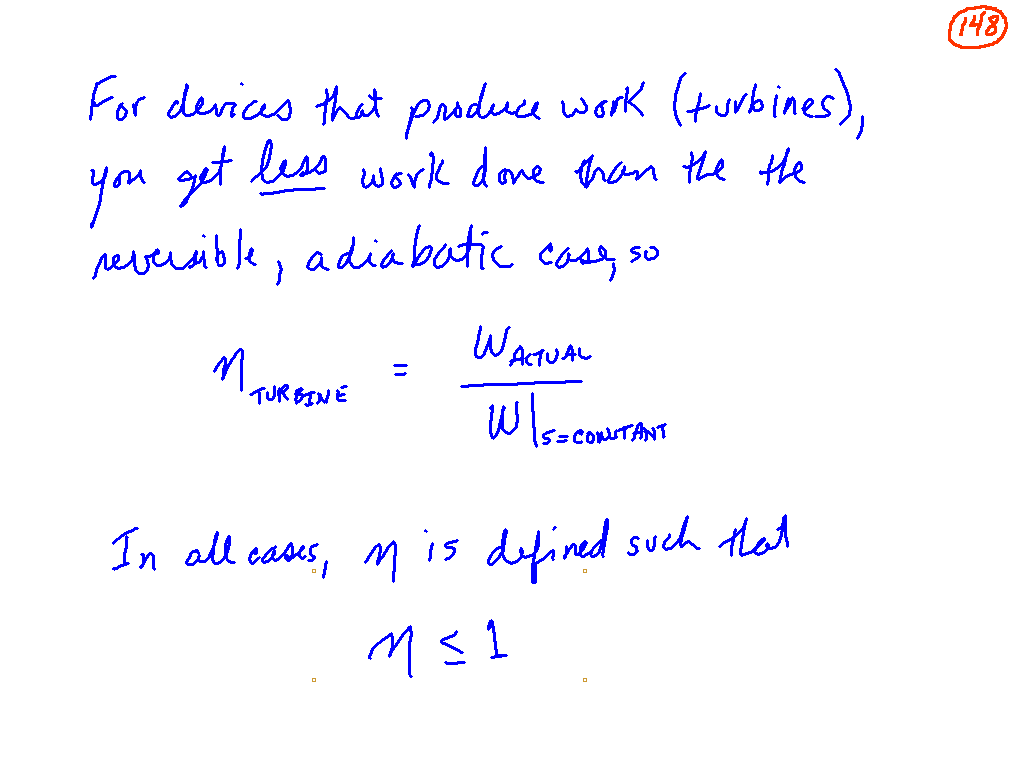 148
For devices that produce work (turbines),
you get less work done than the the
reversible, adiabatic case, so
η TURBINE = W ACTUAL / W|S=CONSTANT
In all cases, η is defined such that
η ≤ 1